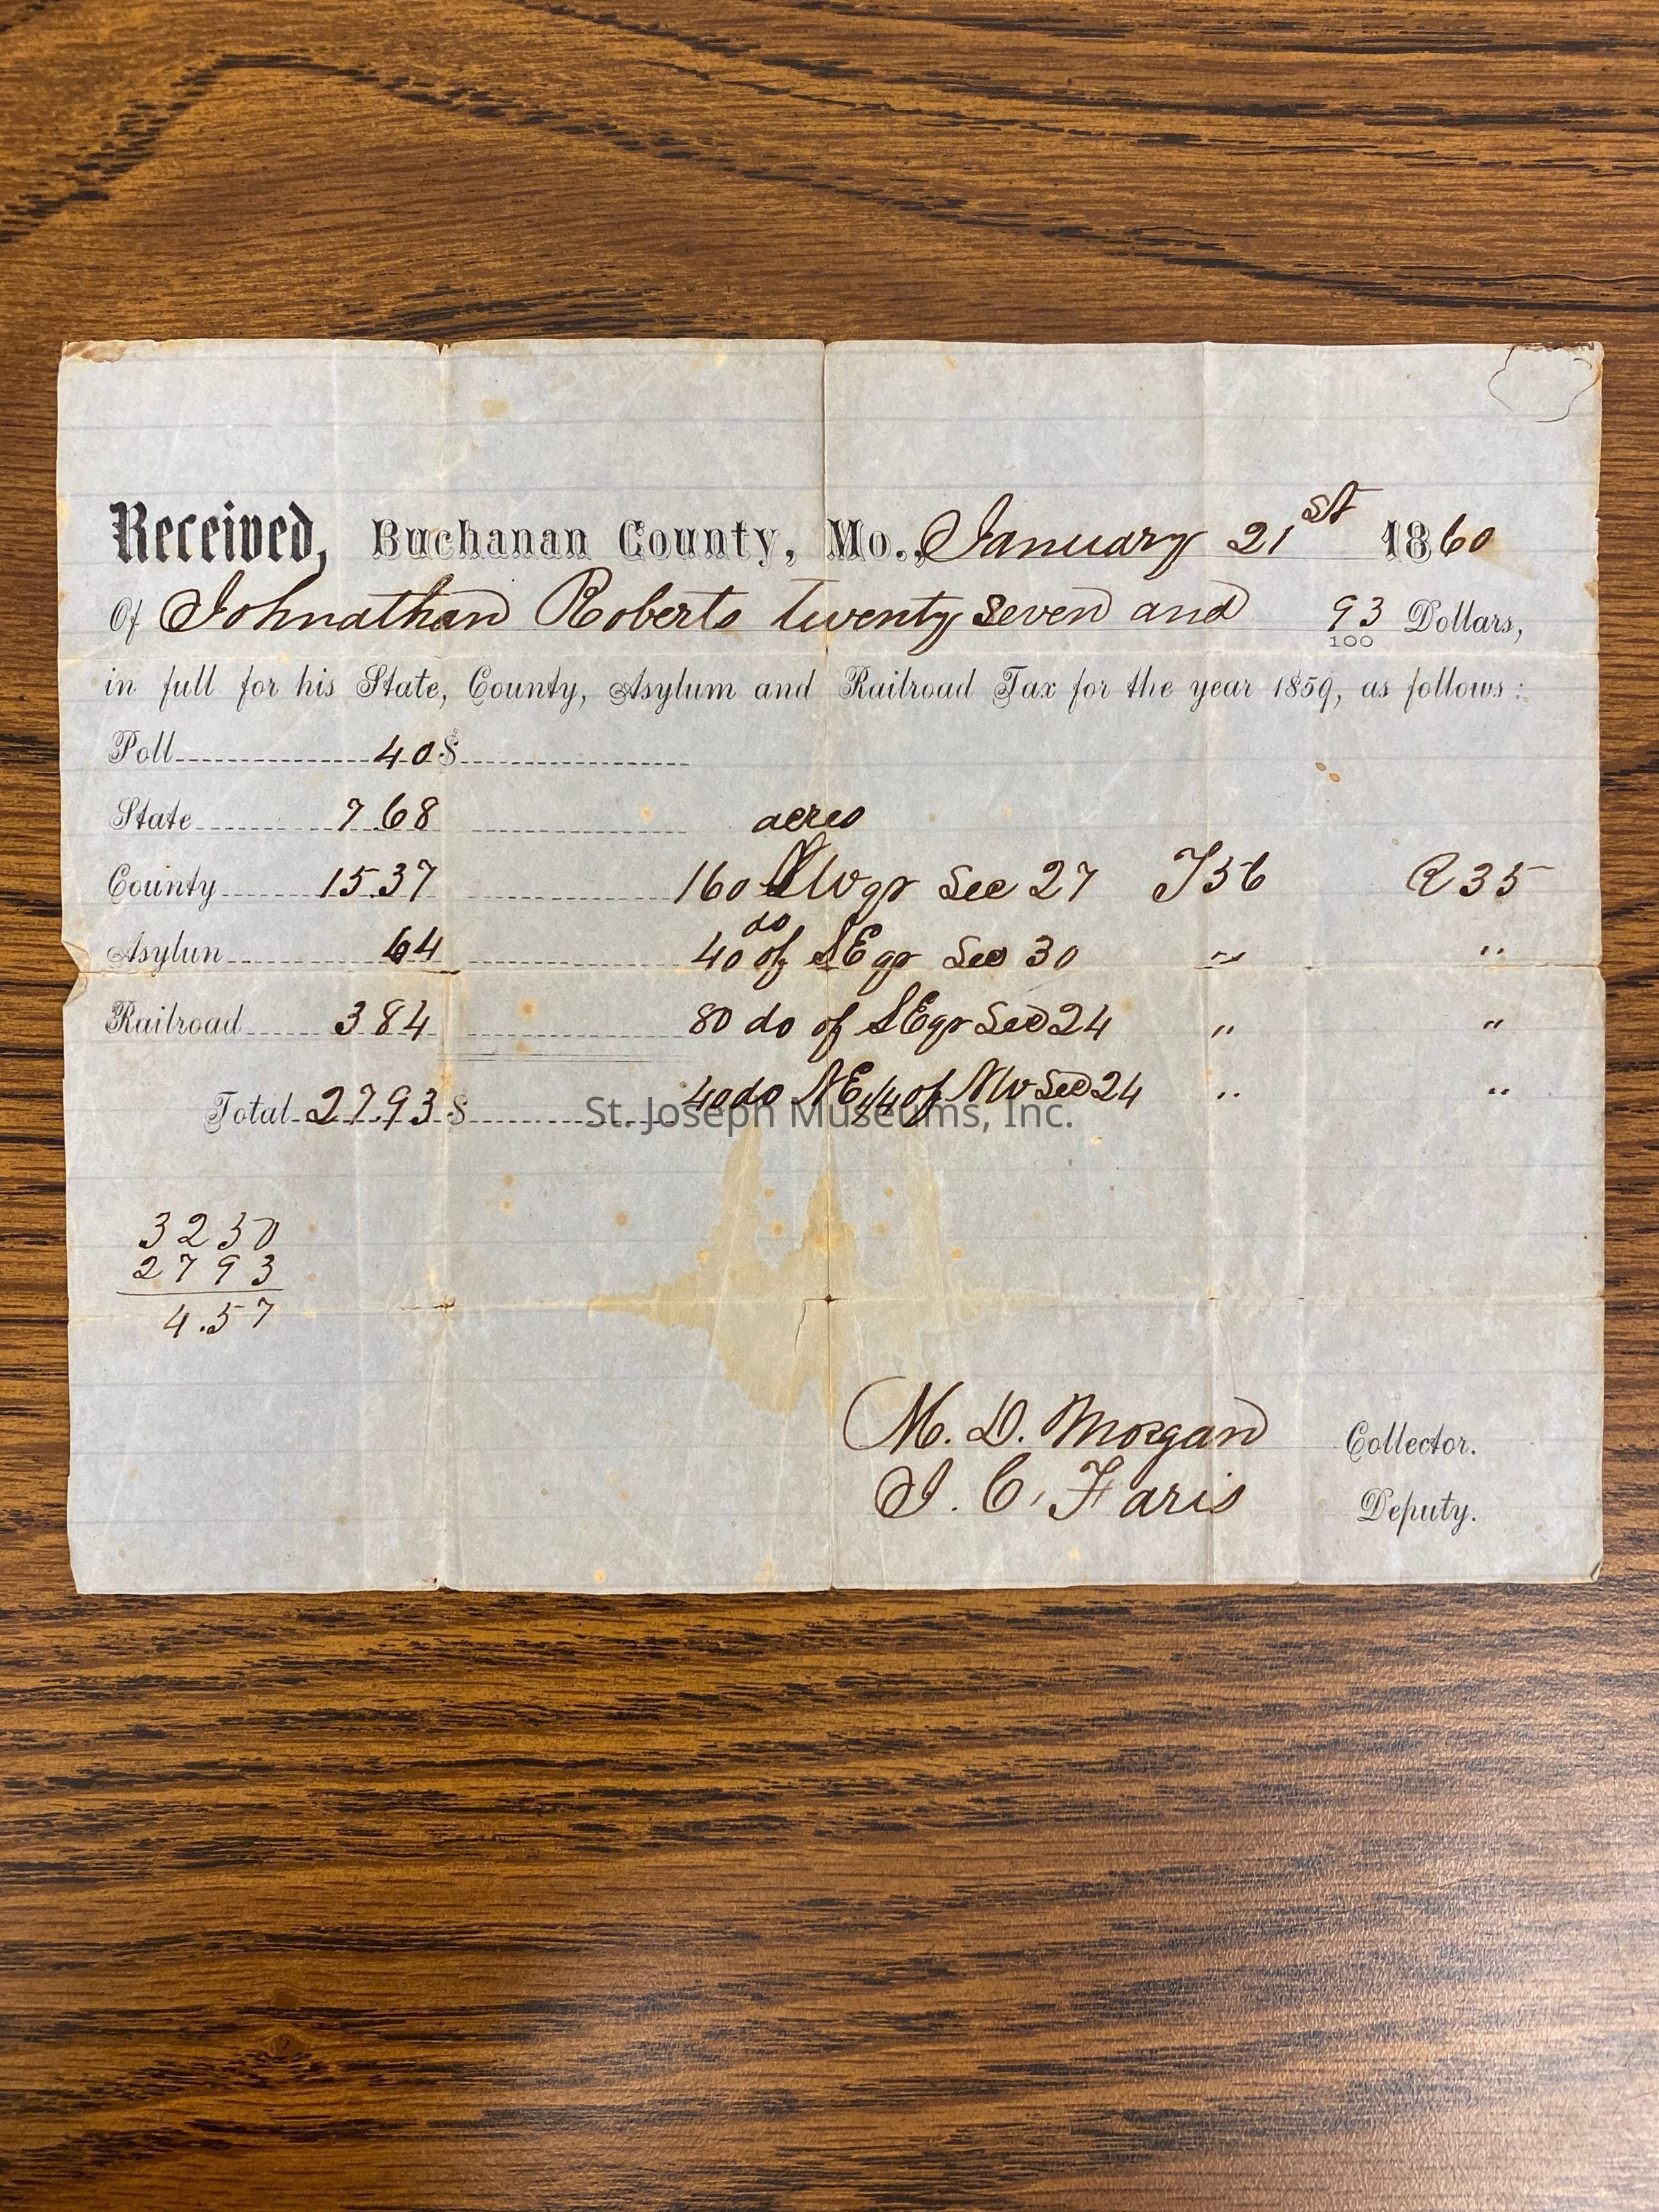 Received, Buchanan County, Mo., January 21st 1860
Of Johnathan Roberts twenty seven and 93/100 Dollars,
in full for his State, County, Asylum and Railroad Tax for the year 1859, as follows:
Poll 40 $
State 7 68 acres
County 15.37 160 SW qr Sec 27 T56 R35
Asylun 64 40 do of SE qr Sec 30 " "
Railroad 3 84 80 do of SE qr Sec 24 " "
Total 27.93 $ 40 do NE 1/4 of NW Sec 24 " "
St. Joseph Museums, Inc.
3250
2793
4.57
M. D. Morgan Collector.
J. C. Faris Deputy.